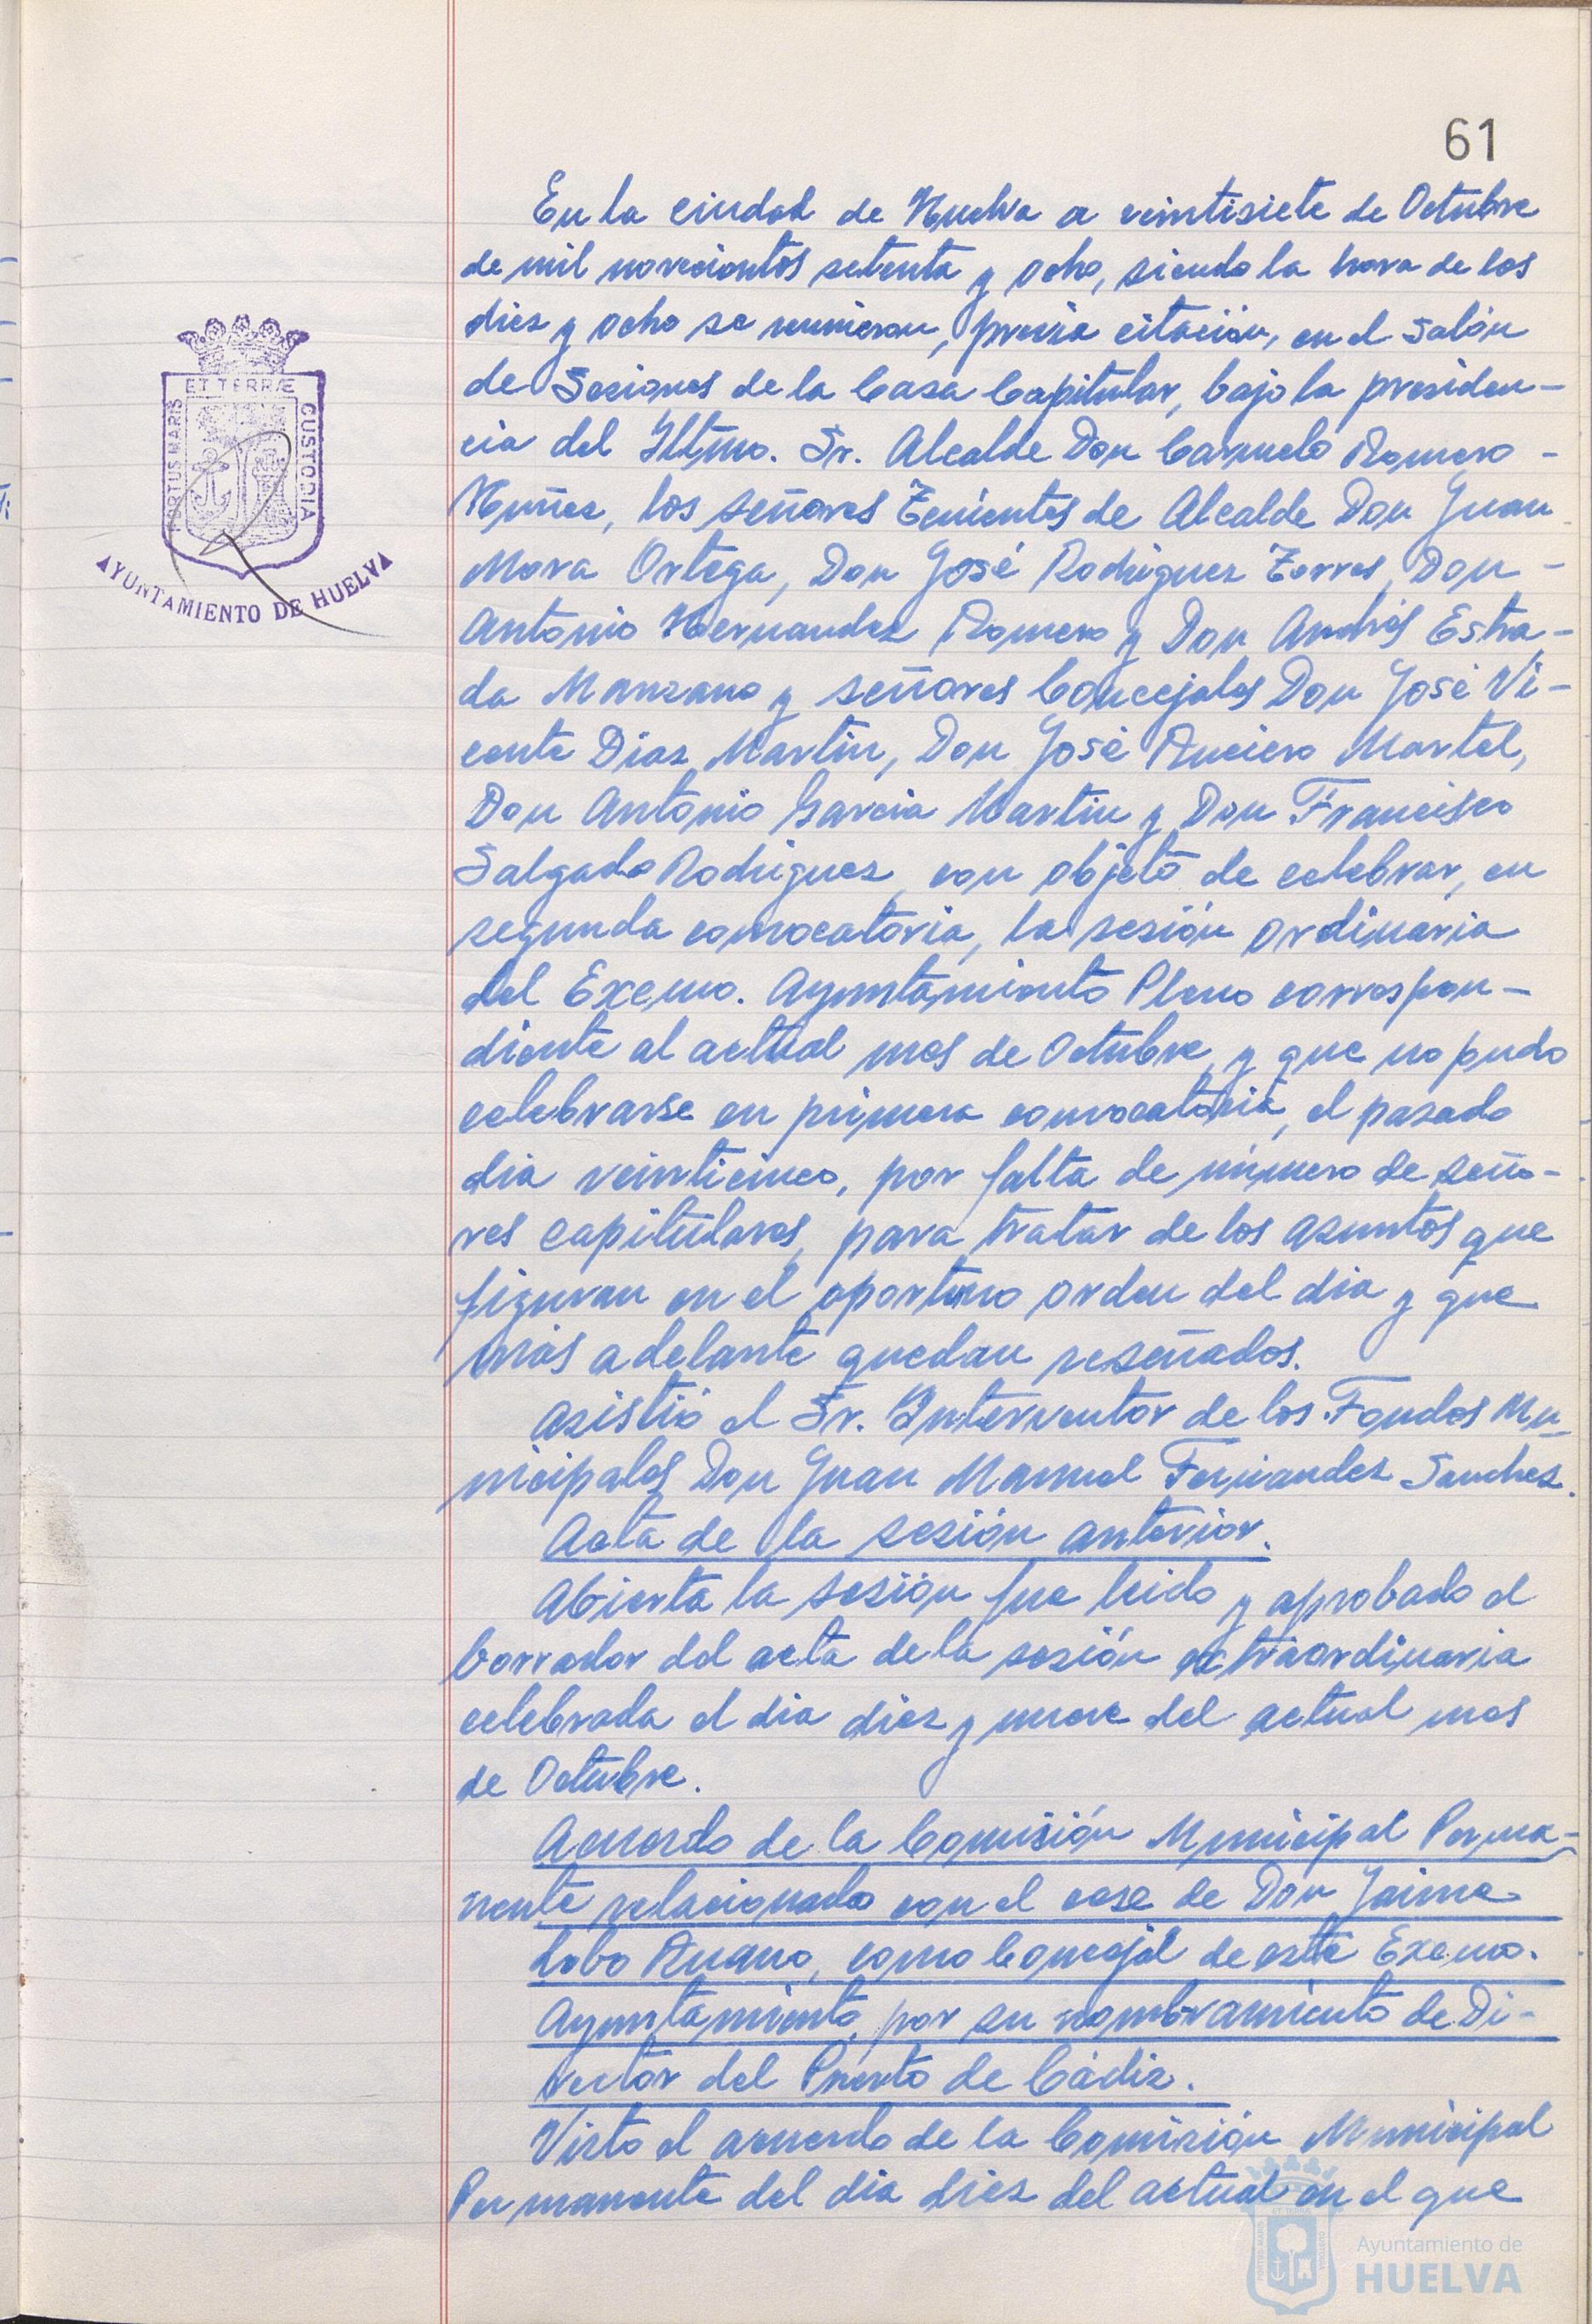 61
En la ciudad de Huelva a veintisiete de Octubre
de mil novecientos setenta y ocho, siendo la hora de las
diez y ocho se reunieron, previa citación, en el Salón
de Sesiones de la Casa Capitular, bajo la presiden-
cia del Iltmo. Sr. Alcalde Don Carmelo Romero -
Núñez, los señores Tenientes de Alcalde Don Juan
Mora Ortega, Don José Rodriguez Torres, Don -
Antonio Hernandez Romero y Don Andrés Estra-
da Manzano y señores Concejales Don José Vi-
cente Diaz Martin, Don José Ruciero Martel,
Don Antonio Garcia Martin y Don Francisco
Salgado Rodriguez, con objeto de celebrar, en
segunda convocatoria, la sesión ordinaria
del Excmo. Ayuntamiento Pleno correspon-
diente al actual mes de Octubre, y que no pudo
celebrarse en primera convocatoria, el pasado
dia veinticinco, por falta de número de seño-
res capitulares, para tratar de los asuntos que
figuran en el oportuno orden del dia y que
más adelante quedan reseñados.
Asistió el Sr. Interventor de los Fondos Mu
nicipales Don Juan Manuel Fernandez Sanchez.
Acta de la sesión anterior.
Abierta la sesión fue leido y aprobado el
borrador del acta de la sesión extraordinaria
celebrada el dia diez y nueve del actual mes
de Octubre.
Acuerdo de la Comisión Municipal Perma-
nente relacionado con el cese de Don Jaime
Lobo Ruano, como Concejal de este Excmo.
Ayuntamiento, por su nombramiento de Di-
rector del Puerto de Cádiz.
Visto el acuerdo de la Comisión Municipal
Permanente del dia diez del actual en el que
PORTUS MARIS ET TERRÆ CUSTODIA
AYUNTAMIENTO DE HUELVA
Ayuntamiento de
HUELVA